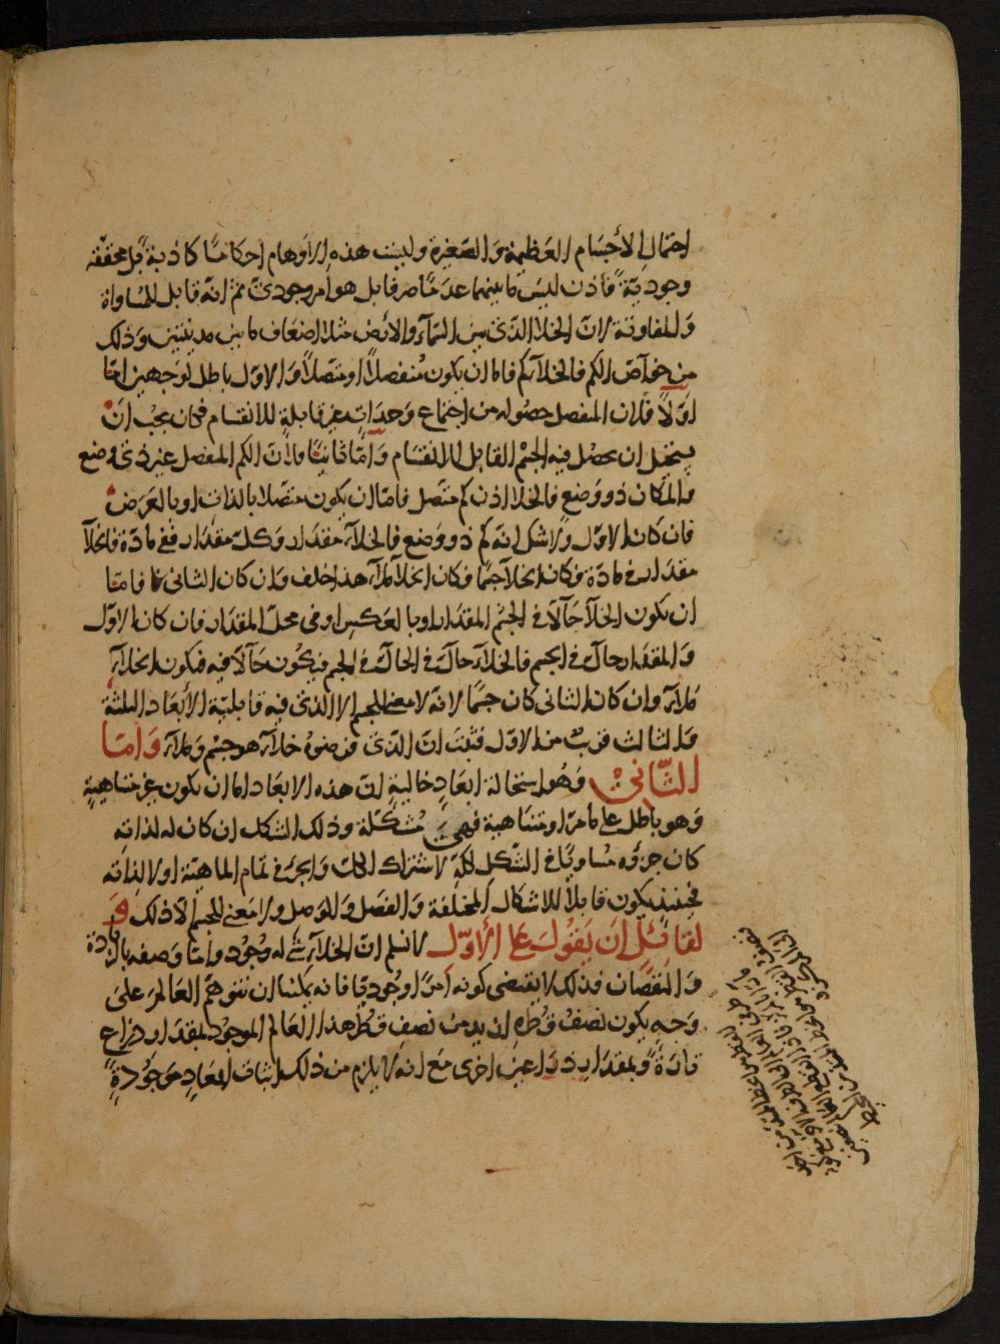 احتمال الأجسام العظيمة والصغيرة وليست هذه الاوهام احكاما كاذبة بل محققة
وجودية فاذن ليس ما بينهما عدما صرفا بل هو امر وجودي ثم انه قابل للمساواة
والمفاوتة لان الخلا الذي بين السماء والارض مثلا اضعاف ما بين مدينتين وذلك
من خواص الكم فالخلاء كم فاما ان يكون منفصلا او متصلا والاول باطل لوجهين اما
اولا فلان المنفصل حصوله من اجتماع وحدات غير قابلة للانقسام فكان يجب ان
يستحيل ان يحصل فيه الجسم القابل للانقسام واما ثانيا فلان الكم المنفصل غير ذي وضع
والمكان ذو وضع فالخلا اذن كم متصل فاما ان يكون متصلا بالذات او بالعرض
فان كان الاول ولا شك انه كم ذو وضع فالخلاء مقدار وكل مقدار ففي مادة فالخلآ
مقدار في مادة فكان الخلآ جسما فكان الخلآ ملآء هذا خلف وان كان الثاني فاما
ان يكون الخلآ حالا في الجسم المقدار او بالعكس او في محل المقدار فان كان الاول
والمقدار حال في الجسم فالخلاء حال في الحال في الجسم فيكون حالا فيه فيكون الخلاء
ملاء وان كان الثاني كان جسما لانه لا معنى للجسم الا الذي فيه قابلية الابعاد الثلثة
والثالث قريب من الاول فثبت ان الذي فرضوه خلاء هو جسم وملاء واما
الثاني وهو استحالة ابعاد خالية ان هذه الابعاد اما ان يكون غير متناهية
وهو باطل على ما مر او متناهية فهي مشكلة وذلك الشكل ان كان له لذاته
كان جزؤه مساويا في الشكل لكله لاشتراك الكل والجزء في تمام الماهية او لا لذاته
فحينئذ يكون قابلا للاشكال المختلفة والفصل والوصل ولا معنى للجسم الا ذلك و
لقائل ان يقول على الاول لا نسلم ان الخلاء شئ له وجود واما وصفه بالزيادة
والنقصان فذلك لا يقتضي كونه امرا وجوديا فانه يمكننا ان نتوهم العالم على
وجه يكون نصف قطره ازيد من نصف قطر هذا العالم الموجود بمقدار ذراع
تارة وبمقدار ذراعين اخرى مع انه لا يلزم من ذلك اثبات ابعاد موجودة